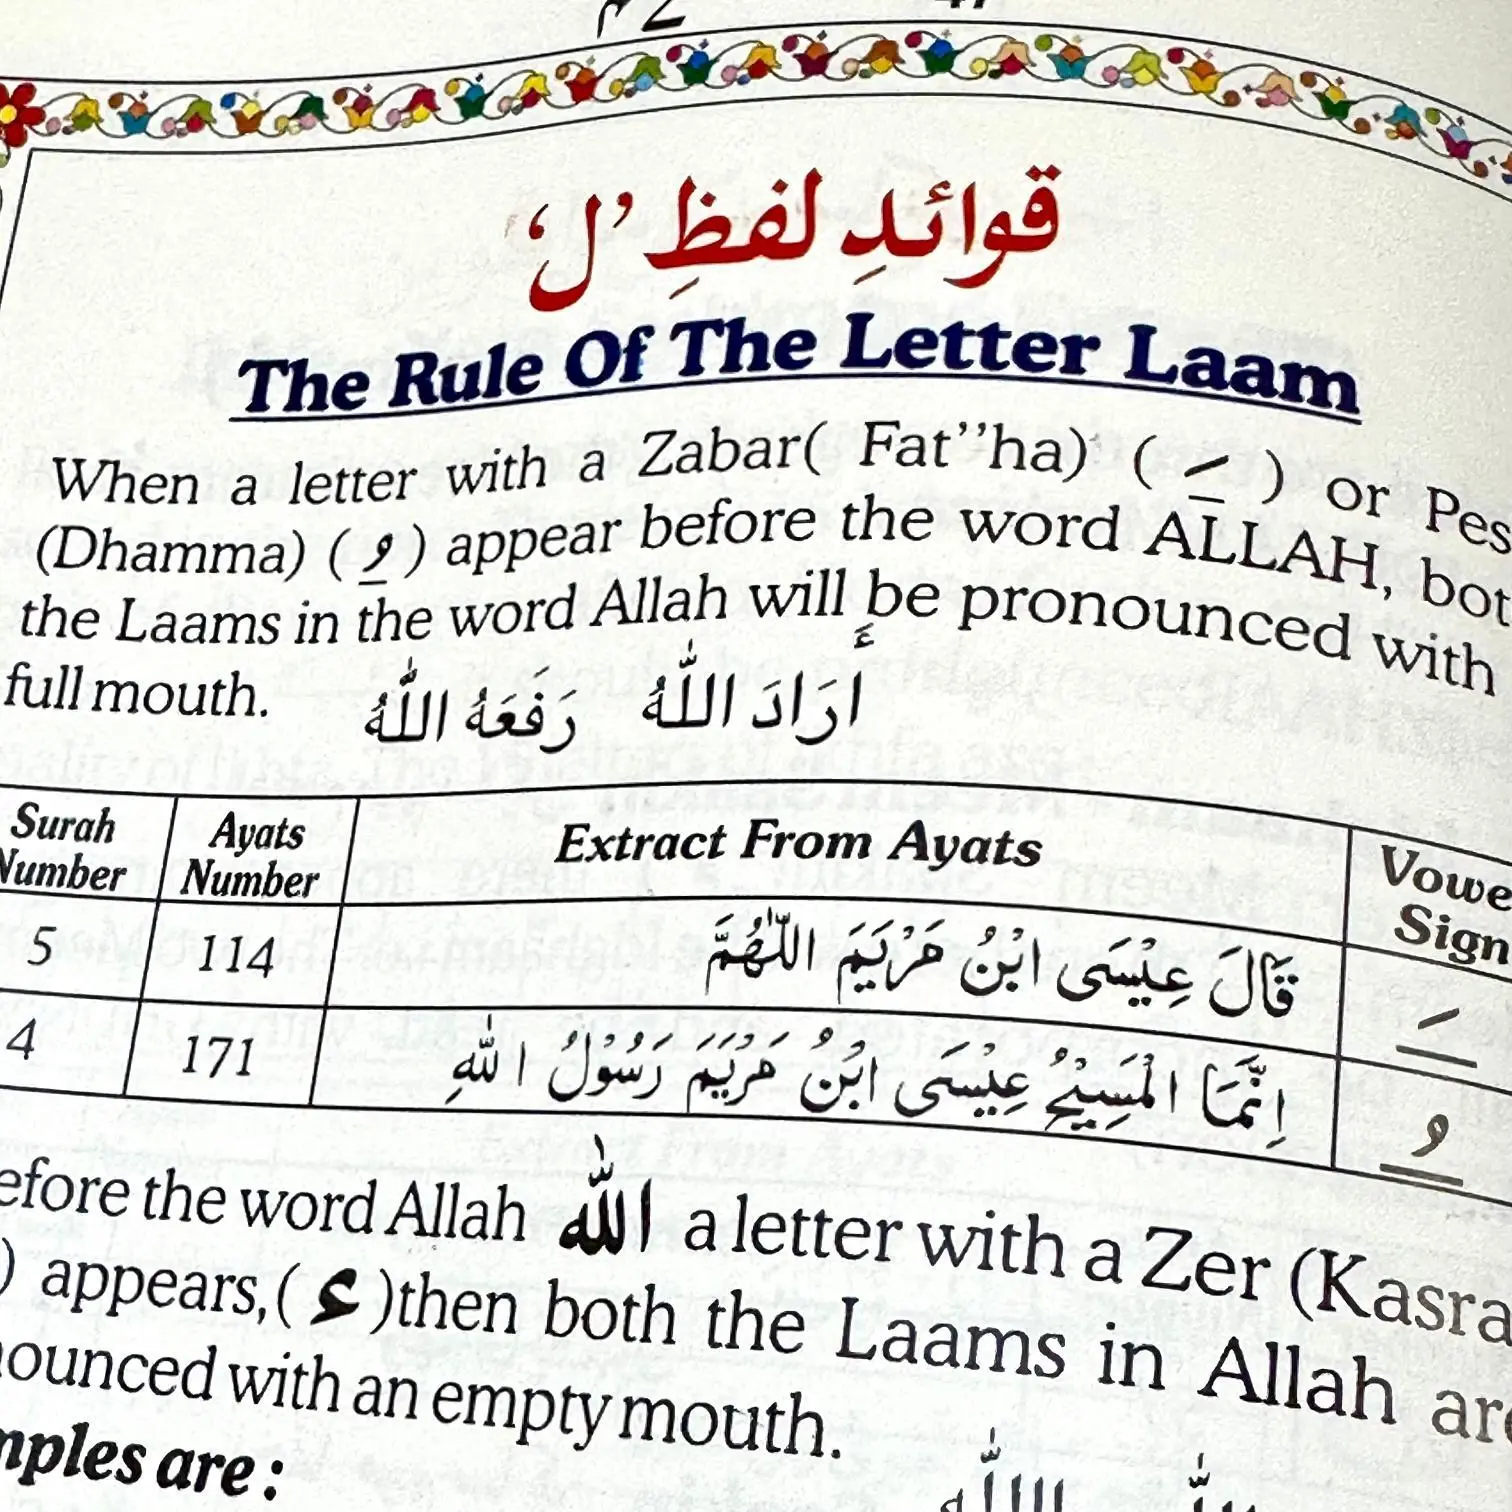 قوائدِ لفظِ ’ل‘
The Rule Of The Letter Laam
When a letter with a Zabar( Fat’’ha) ( ـَ ) or Pes
(Dhamma) ( ـُ ) appear before the word ALLAH, bot
the Laams in the word Allah will be pronounced with
full mouth. أَرَادَ اللّٰهُ رَفَعَهُ اللّٰهُ
Surah Number Ayats Number Extract From Ayats Vowe Sign
5 114 قَالَ عِيْسَى ابْنُ مَرْيَمَ اللّٰهُمَّ ـَ
4 171 اِنَّمَا الْمَسِيْحُ عِيْسَى ابْنُ مَرْيَمَ رَسُوْلُ اللّٰهِ ـُ
efore the word Allah اللّٰه a letter with a Zer (Kasra
) appears,( )then both the Laams in Allah are
nounced with an empty mouth.
mples are :